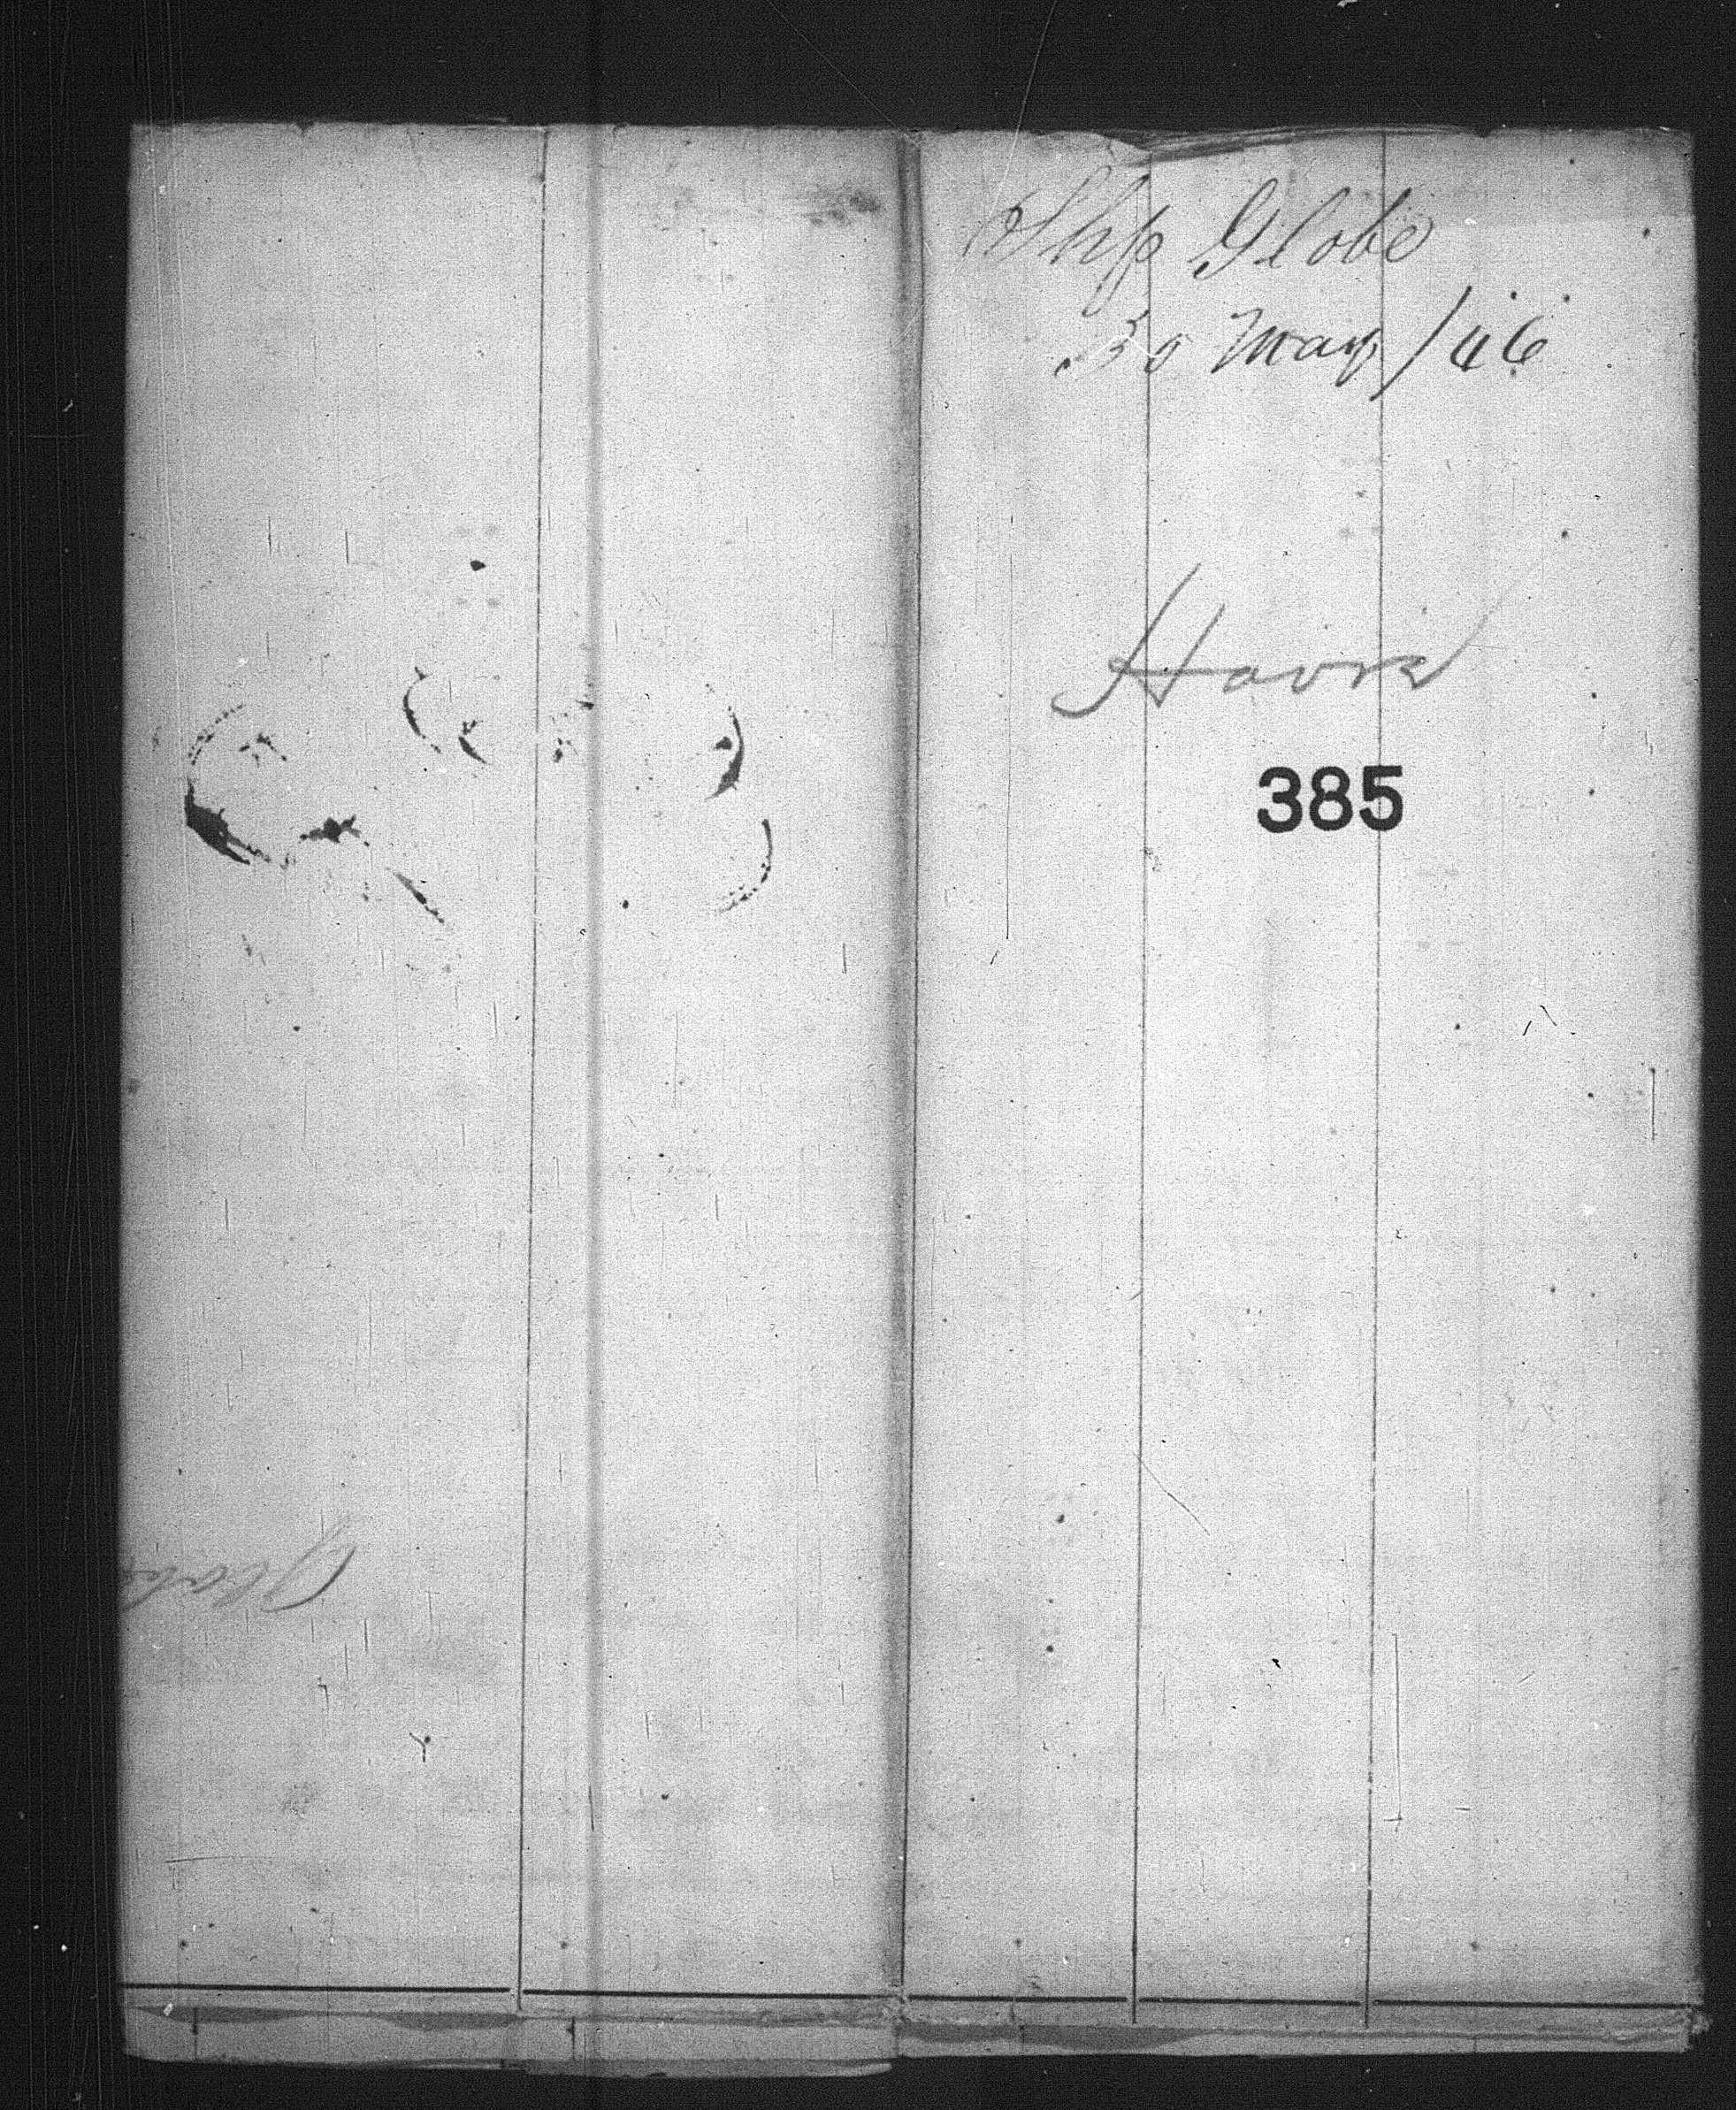 Ship Globe
30 May / 46
Havre
385
Globe